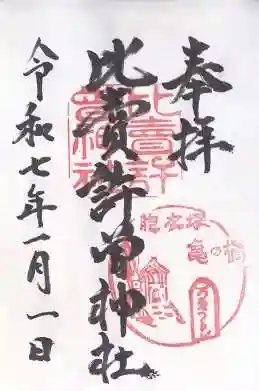 奉拝
比賣許曽神社
令和七年一月一日
比賣許
胞衣塚
亀の橋